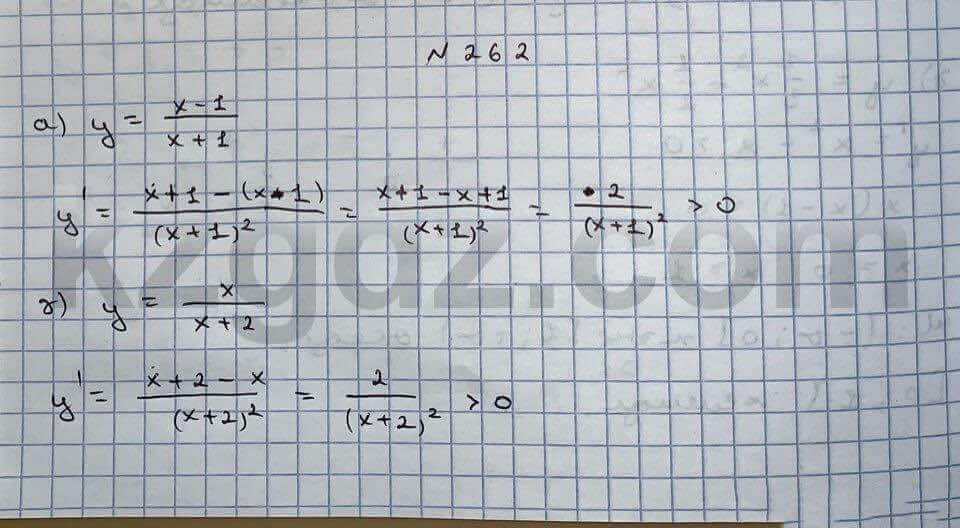 N 262
а) y = x-1 / x+1
y' = x+1-(x-1) / (x+1)² = x+1-x+1 / (x+1)² = 2 / (x+1)² > 0
г) y = x / x+2
y' = x+2-x / (x+2)² = 2 / (x+2)² > 0
kzgdz.com